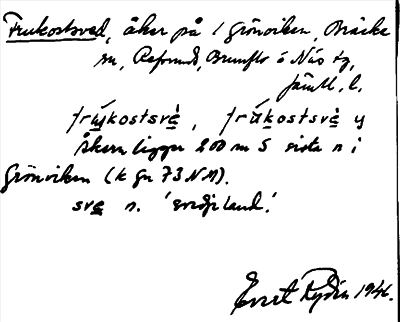 Frukostsved, åker på 1 Grönviken, Bräcke
sn, Refsunds, Brunflo o Näs tg,
Jämtl. l.
frúkostsvè, frúkostsvè
Åkern ligger 200 m S sista n i
Grönviken (k Gn 73 NM).
sve n. 'svedjeland'.
Ernst Rydén 1946.